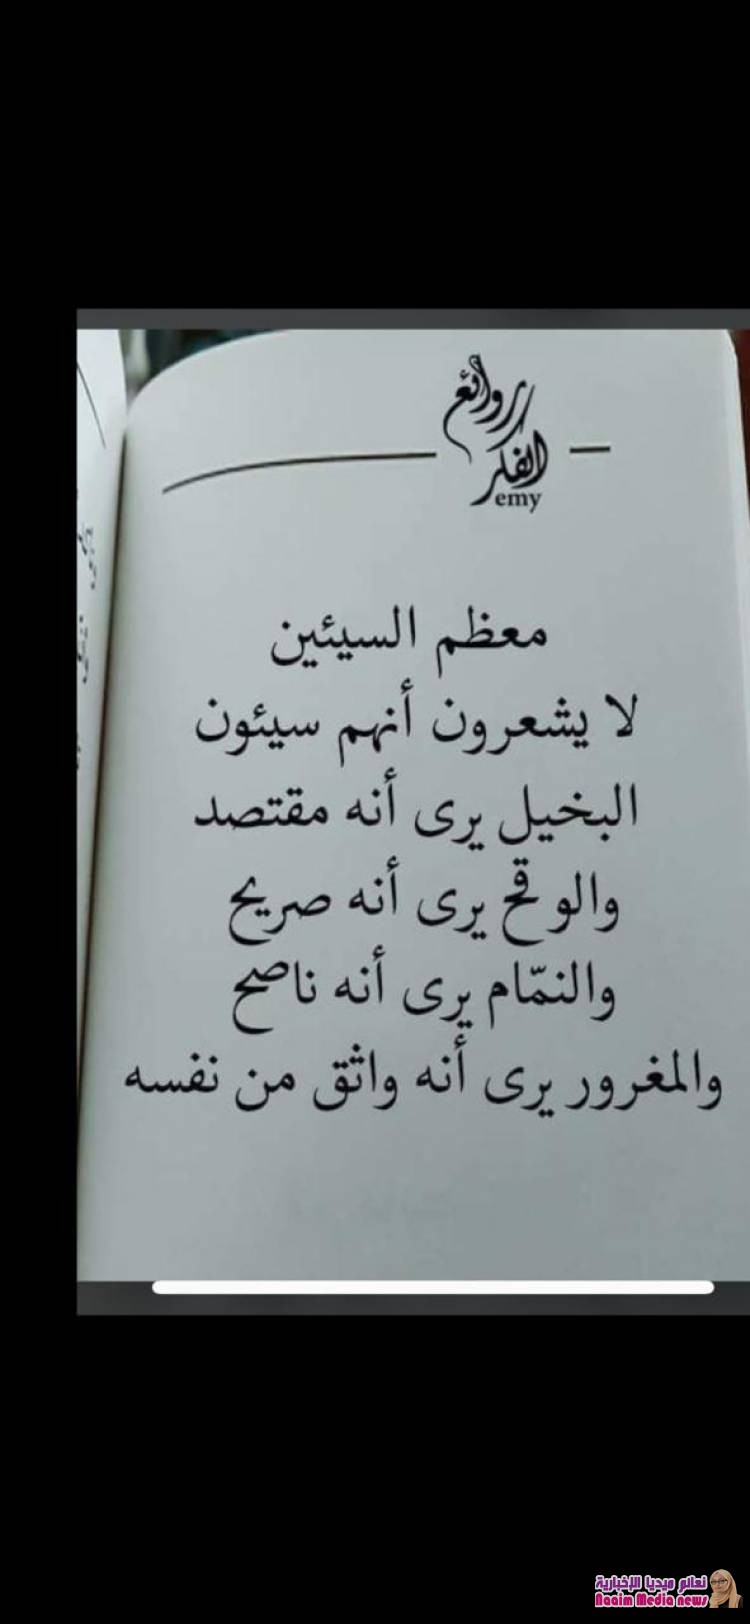 روائع
الفكر
emy
معظم السيئين
لا يشعرون أنهم سيئون
البخيل يرى أنه مقتصد
والوقح يرى أنه صريح
والنمّام يرى أنه ناصح
والمغرور يرى أنه واثق من نفسه
نعائم ميديا الإخبارية
Naaim Media news